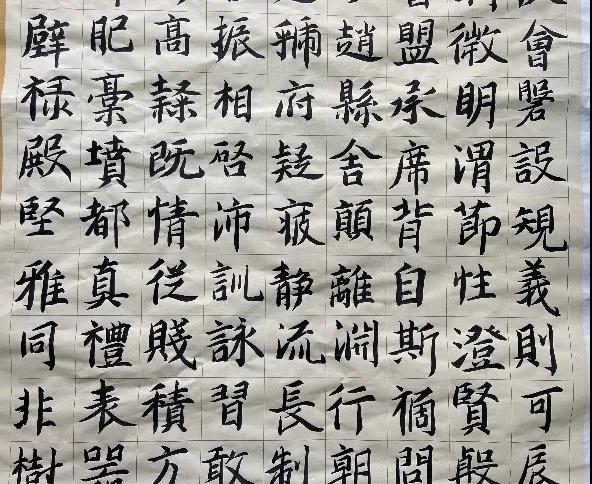 會設規義則可辰
微明渭節性澄賢殷
盟承席背自斯禍問
趙縣舍顛離淵行朝
府疑疲靜流長制
振相啓沛訓詠習敢
高隸既情從賤積方
肥稾墳都真禮表器
壁祿殿堅雅同非樹